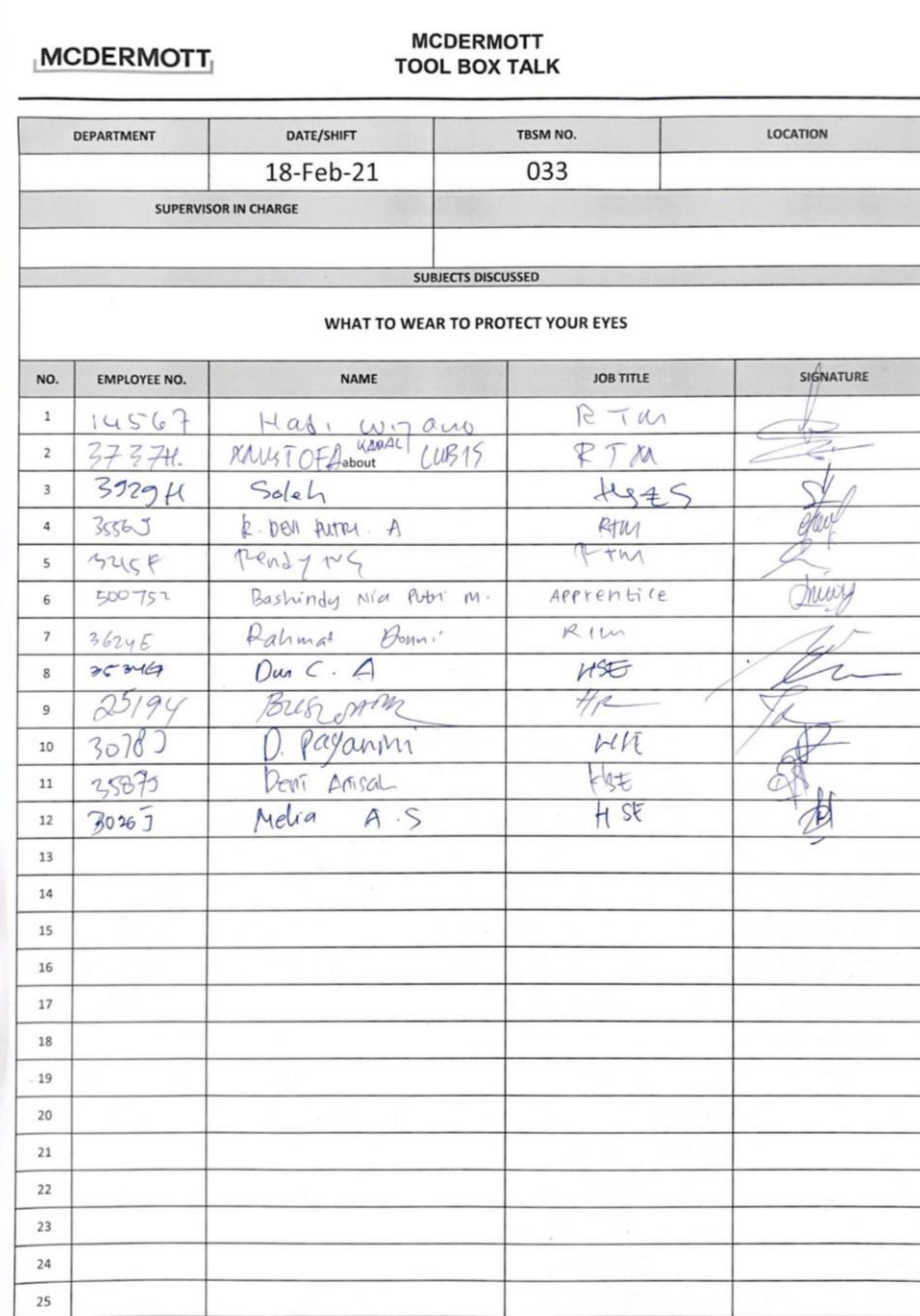 MCDERMOTT
MCDERMOTT
TOOL BOX TALK
DEPARTMENT DATE/SHIFT TBSM NO. LOCATION
18-Feb-21 033
SUPERVISOR IN CHARGE
SUBJECTS DISCUSSED
WHAT TO WEAR TO PROTECT YOUR EYES
NO. EMPLOYEE NO. NAME JOB TITLE SIGNATURE
1 14567 Hadi RTM
2 3737H. KAMAL LUBIS RTM
about
3 3929H Soleh
4 3556J R. DEVI PUTRI. A RTM
5 Rendy RTM
6 500752 Bashindy Nia Putri M. Apprentice
7 3624E Rahmat RTM
8 C. A HSE
9 25194 HR
10 3078J D. Payanmi
11 3587J Devi HSE
12 3026J Melia A.S HSE
13
14
15
16
17
18
19
20
21
22
23
24
25